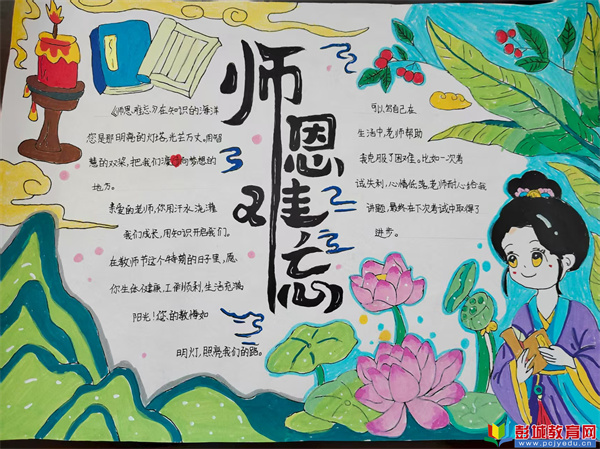 师恩难忘
《师恩难忘》在知识的海洋
您是那明亮的灯塔,光芒万丈。用智
慧的双桨,把我们渡向梦想的
地方。
亲爱的老师,你用汗水浇灌
我们成长,用知识开启我们。
在教师节这个特萌的日子里,愿
你生体健康,工制顺利,生活充满
阳光!您的教悔如
明灯,照亮我们的路。
可以写自己在
生活中,老师帮助
我克服了困难。比如一次考
试失利,心情低落,老师耐心给我
讲题,最终在下次考试中取得了
进步。
彭城教育网
www.pcjyedu.cn